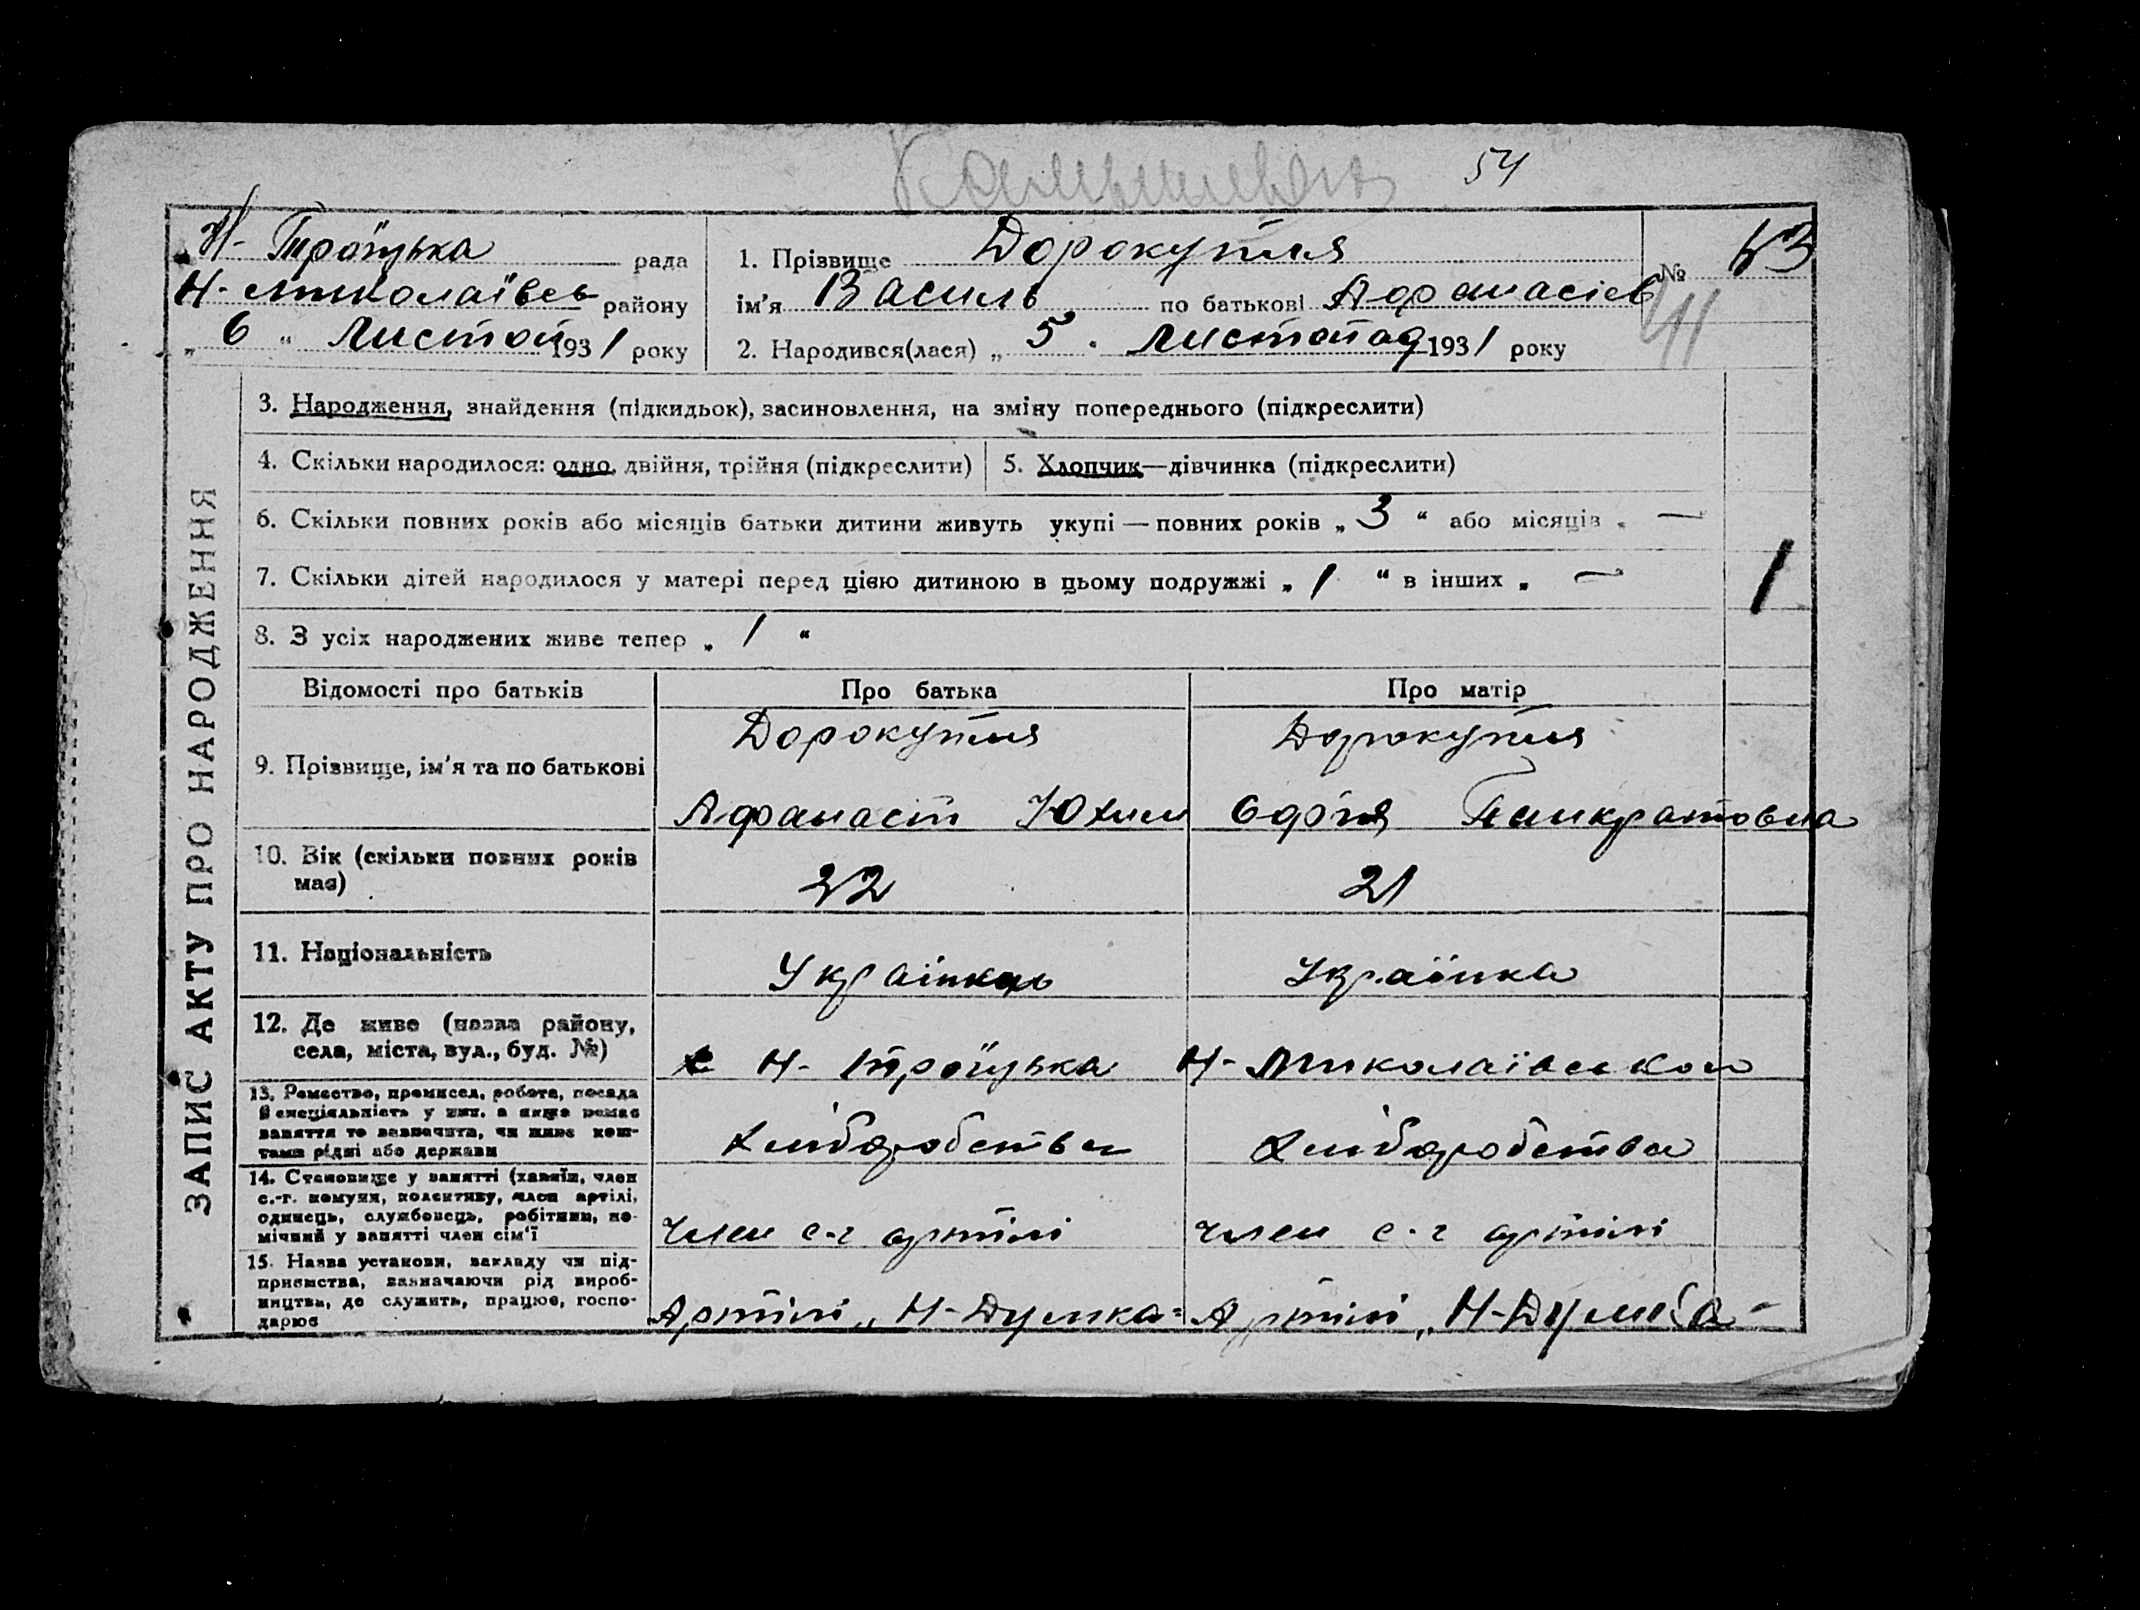 54
Н- Троїцька рада
Н- Миколаївсь району
„ 6 “ Листоп 1931 року
1. Прізвище Дорокупля
ім'я Василь по батькові Афанасієв
2. Народився(лася) „ 5 . Листопад 1931 року
№ 53
41
ЗАПИС АКТУ ПРО НАРОДЖЕННЯ
3. Народження, знайдення (підкидьок), засиновлення, на зміну попереднього (підкреслити)
4. Скільки народилося: одно, двійня, трійня (підкреслити)
5. Хлопчик—дівчинка (підкреслити)
6. Скільки повних років або місяців батьки дитини живуть укупі — повних років „ 3 “ або місяців „ —
7. Скільки дітей народилося у матері перед цією дитиною в цьому подружжі „ 1 “ в інших „ —
1
8. З усіх народжених живе тепер „ 1 “
Відомості про батьків Про батька Про матір
9. Прізвище, ім'я та по батькові
Дорокупля
Афанасій Юхим
Дорокупля
Софія Панкратовна
10. Вік (скільки повних років
має)
22 21
11. Національність
Українець Українка
12. Де живе (назва району,
села, міста, вул., буд. №)
с Н- Троїцька Н- Миколаївського
13. Ремество, промисел, робота, посада
й спеціяльність у них, а якщо немає
заняття то зазначити, чи живе кош-
тами рідні або держави
Хліборобства Хліборобства
14. Становище у занятті (хазяїн, член
с.-г. комуни, колективу, член артілі,
одинець, службовець, робітник, по-
мічний у занятті член сім'ї
Член с-г артілі Член с-г артілі
15. Назва установи, закладу чи під-
приємства, зазначаючи рід вироб-
ництва, де служить, працює, госпо-
дарює
Артілі „ Н-Думка “ Артілі „ Н-Думка “